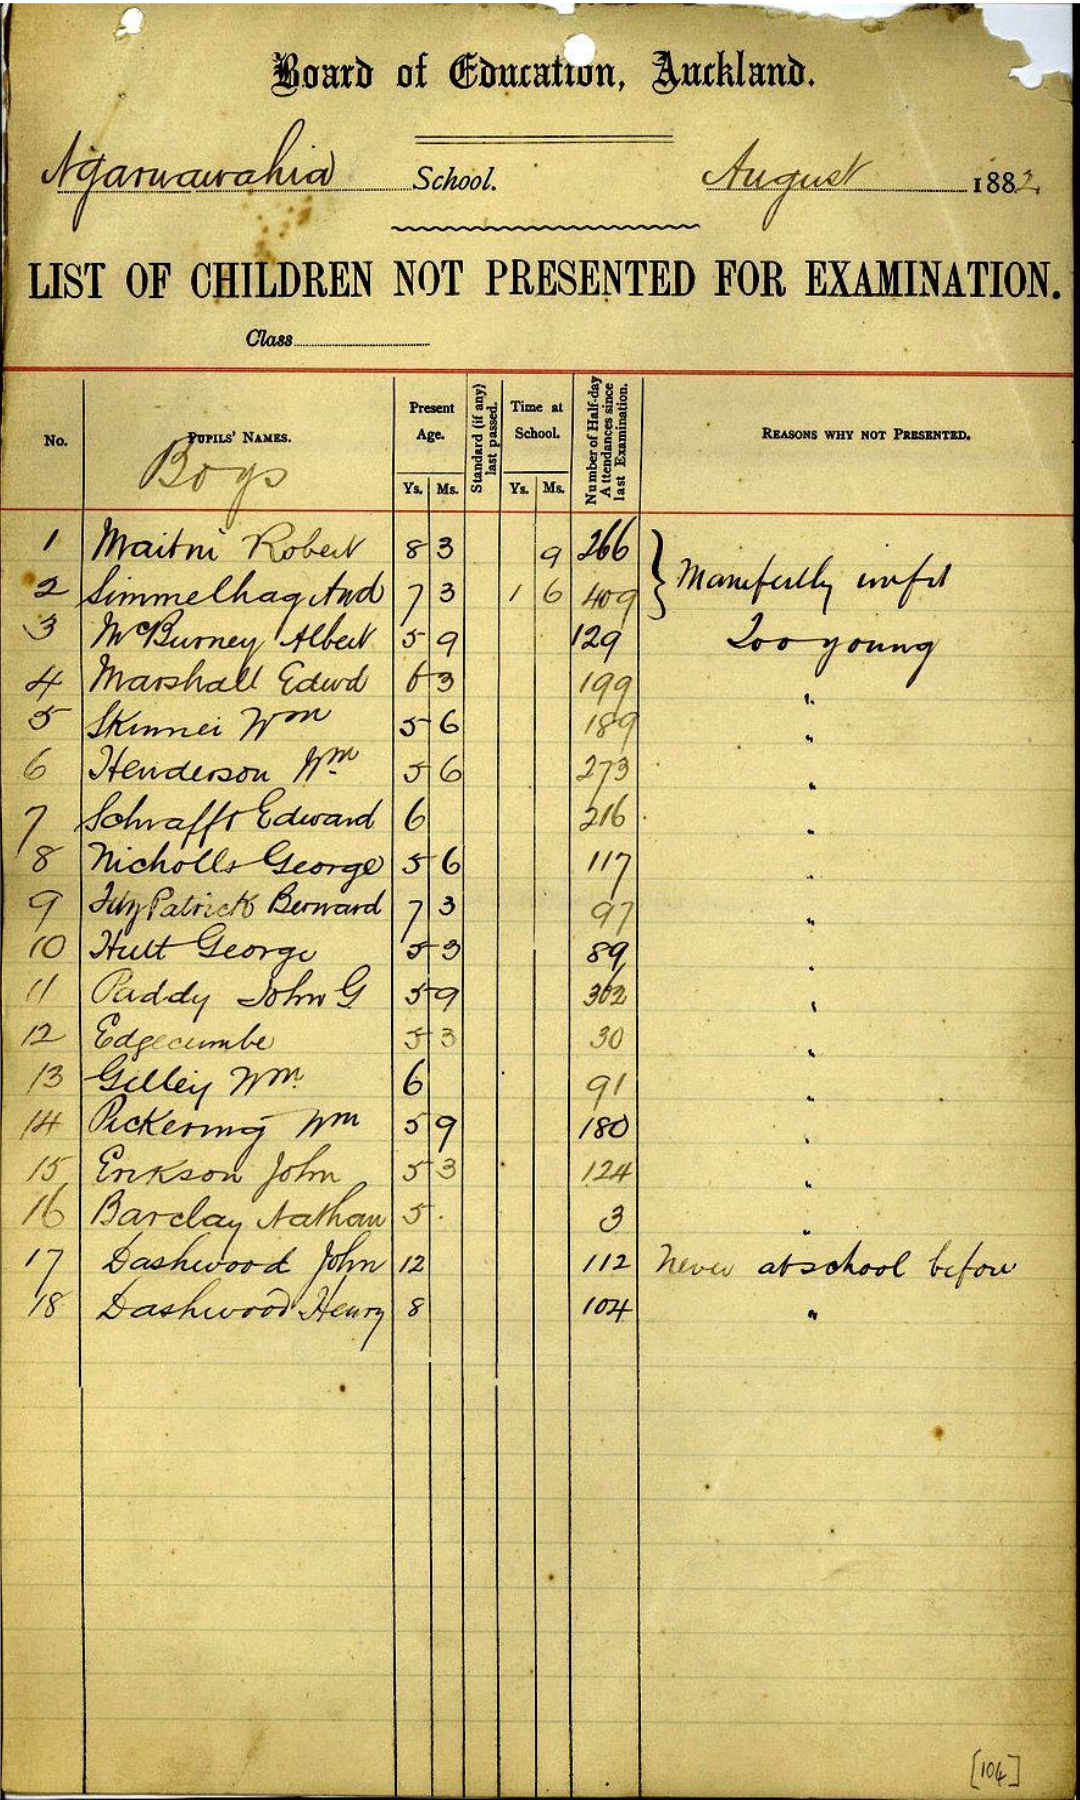 Board of Education, Auckland.
Ngaruawahia School. August 1882.
LIST OF CHILDREN NOT PRESENTED FOR EXAMINATION.
Class
No. PUPILS' NAMES. Present Age. Ys. Ms. Standard (if any) last passed. Time at School. Ys. Ms. Number of Half-day Attendances since last Examination. REASONS WHY NOT PRESENTED.
Boys
1 Robert 8 3 9 266
2 Simmelhag And 7 3 1 6 409 } Manifestly unfit
3 McBurney Albert 5 9 129 Too young
4 Marshall Edwd 6 3 199 "
5 Skinner Wm 5 6 189 "
6 Henderson Wm 5 6 273 "
7 Schrafft Edward 6 216 "
8 Nicholls George 5 6 117 "
9 FitzPatrick Bernard 7 3 97 "
10 George 5 3 89 "
11 Paddy John G 5 9 "
12 Edgecumbe 5 3 30 "
13 Wm. 6 91 "
14 Pickering Wm 5 9 180 "
15 Erikson John 5 3 124 "
16 Barclay Nathan 5 3 "
17 Dashwood John 12 112 Never at school before
18 Dashwood Henry 8 104 "
[104]